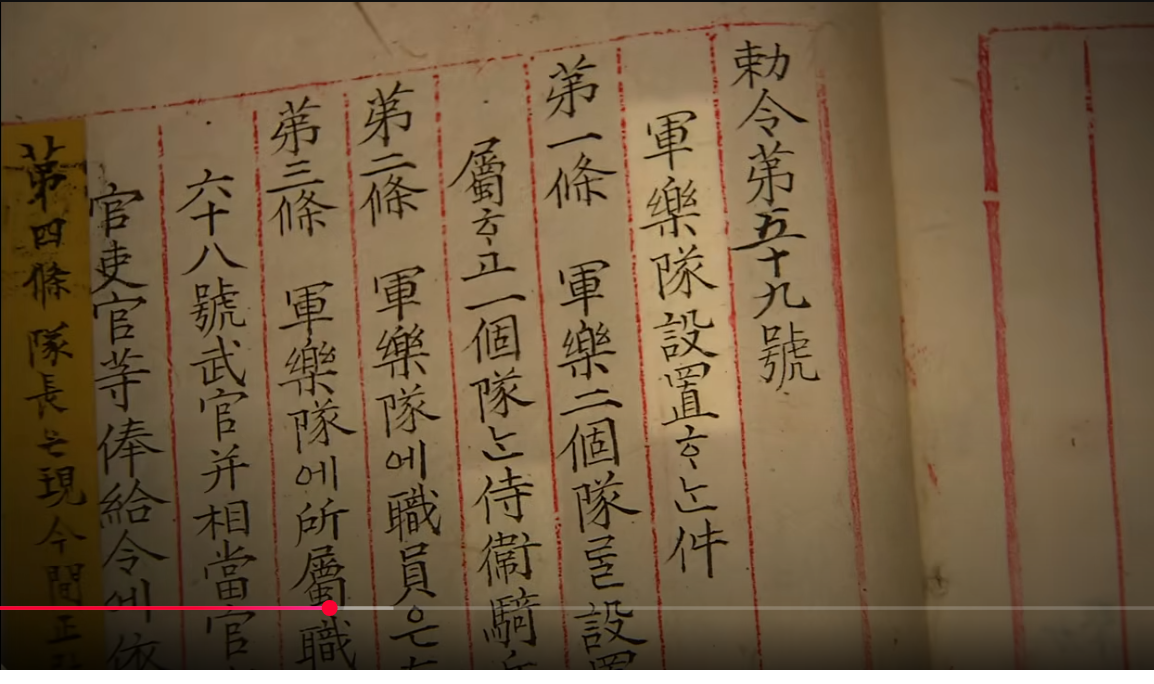 勅令第五十九號
軍樂隊設置ᄒᆞᄂᆞᆫ件
第一條 軍樂二個隊ᄅᆞᆯ設置
屬ᄒᆞ고一個隊ᄂᆞᆫ侍衛騎
第二條 軍樂隊에職員은
第三條 軍樂隊에所屬職
六十八號武官并相當官
官吏官等俸給令에依
第四條 隊長은現今間正